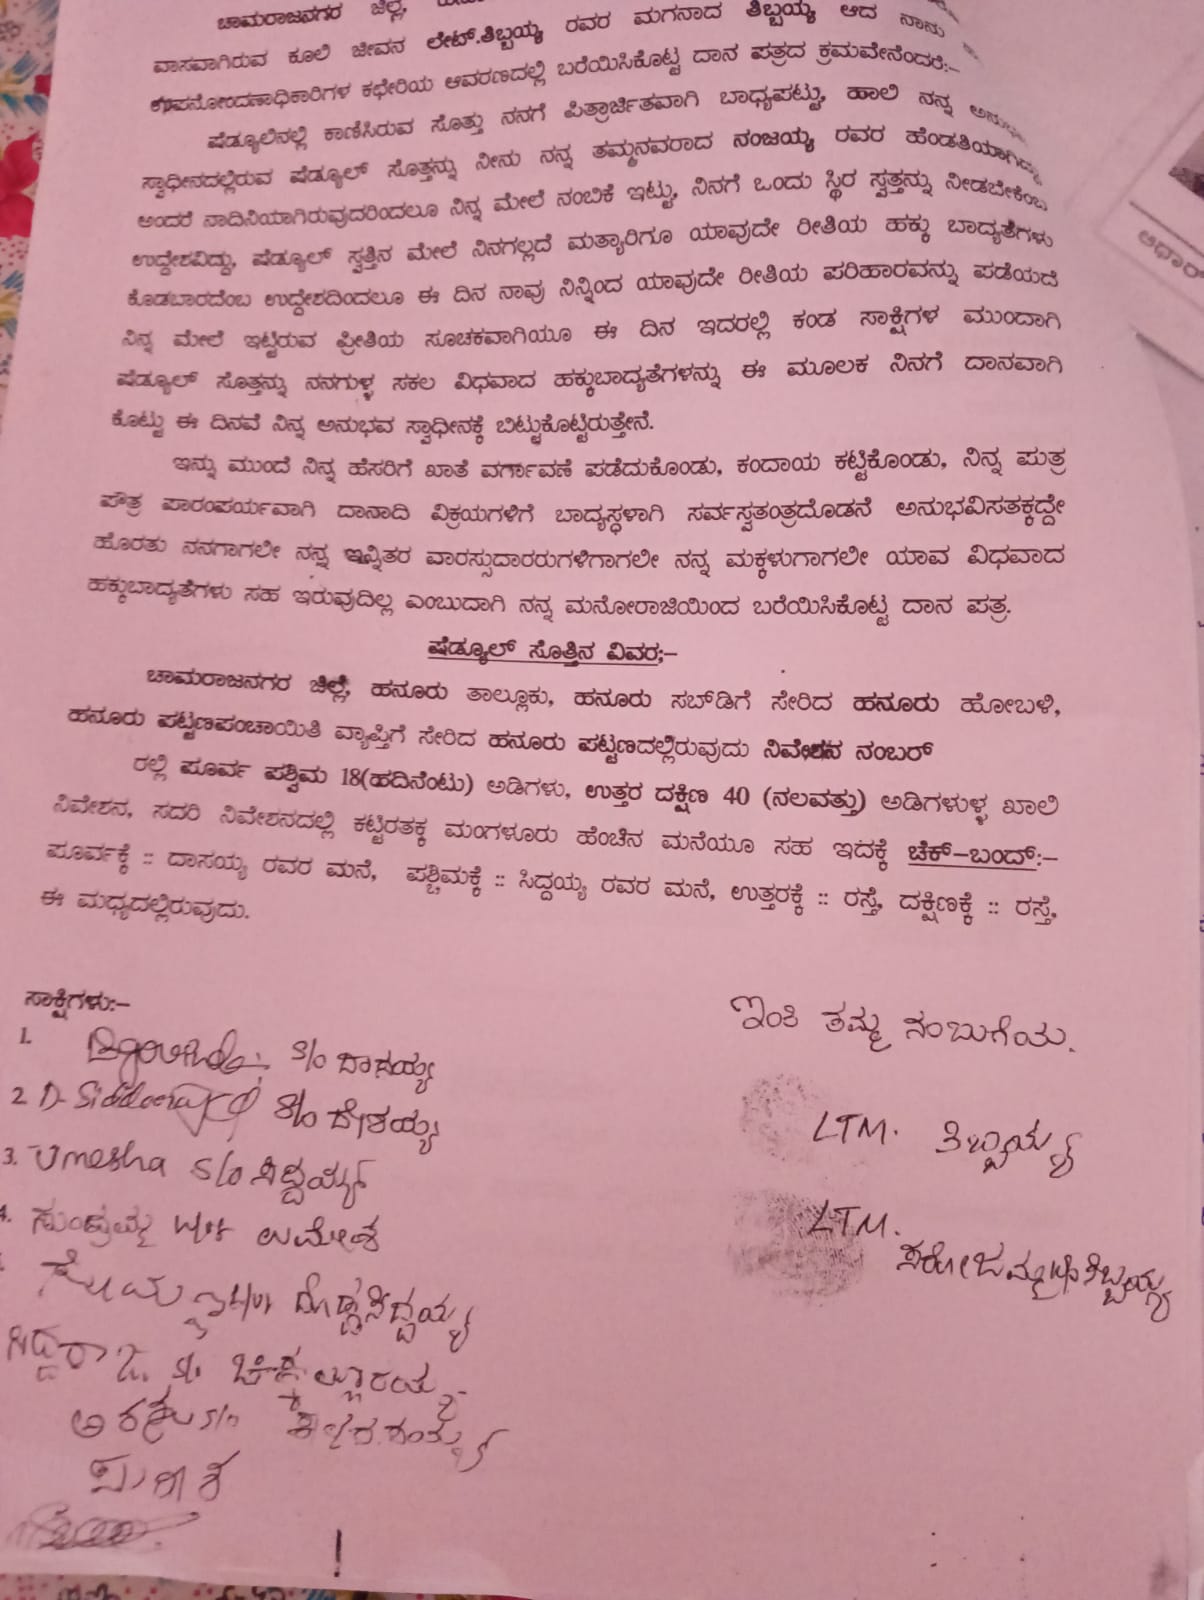 ಚಾಮರಾಜನಗರ ಜಿಲ್ಲೆ,
ವಾಸವಾಗಿರುವ ಕೂಲಿ ಜೀವನ ಲೇಟ್.ತಿಬ್ಬಯ್ಯ ರವರ ಮಗನಾದ ತಿಬ್ಬಯ್ಯ ಆದ ನಾನು
ಉಪನೋಂದಣಾಧಿಕಾರಿಗಳ ಕಛೇರಿಯ ಆವರಣದಲ್ಲಿ ಬರೆಯಿಸಿಕೊಟ್ಟ ದಾನ ಪತ್ರದ ಕ್ರಮವೇನೆಂದರೆ:–
ಷೆಡ್ಯೂಲಿನಲ್ಲಿ ಕಾಣಿಸಿರುವ ಸೊತ್ತು ನನಗೆ ಪಿತ್ರಾರ್ಜಿತವಾಗಿ ಬಾಧ್ಯಪಟ್ಟು, ಹಾಲಿ ನನ್ನ ಅನುಭವ
ಸ್ವಾಧೀನದಲ್ಲಿರುವ ಷೆಡ್ಯೂಲ್ ಸೊತ್ತನ್ನು ನೀನು ನನ್ನ ತಮ್ಮನವರಾದ ನಂಜಯ್ಯ ರವರ ಹೆಂಡತಿಯಾಗಿದ್ದು
ಅಂದರೆ ನಾದಿನಿಯಾಗಿರುವುದರಿಂದಲೂ ನಿನ್ನ ಮೇಲೆ ನಂಬಿಕೆ ಇಟ್ಟು, ನಿನಗೆ ಒಂದು ಸ್ಥಿರ ಸ್ವತ್ತನ್ನು ನೀಡಬೇಕೆಂಬ
ಉದ್ದೇಶವಿದ್ದು, ಷೆಡ್ಯೂಲ್ ಸ್ವತ್ತಿನ ಮೇಲೆ ನಿನಗಲ್ಲದೆ ಮತ್ಯಾರಿಗೂ ಯಾವುದೇ ರೀತಿಯ ಹಕ್ಕು ಬಾದ್ಯತೆಗಳು
ಕೊಡಬಾರದೆಂಬ ಉದ್ದೇಶದಿಂದಲೂ ಈ ದಿನ ನಾವು ನಿನ್ನಿಂದ ಯಾವುದೇ ರೀತಿಯ ಪರಿಹಾರವನ್ನು ಪಡೆಯದೆ
ನಿನ್ನ ಮೇಲೆ ಇಟ್ಟಿರುವ ಪ್ರೀತಿಯ ಸೂಚಕವಾಗಿಯೂ ಈ ದಿನ ಇದರಲ್ಲಿ ಕಂಡ ಸಾಕ್ಷಿಗಳ ಮುಂದಾಗಿ
ಷೆಡ್ಯೂಲ್ ಸೊತ್ತನ್ನು ನನಗುಳ್ಳ ಸಕಲ ವಿಧವಾದ ಹಕ್ಕುಬಾದ್ಯತೆಗಳನ್ನು ಈ ಮೂಲಕ ನಿನಗೆ ದಾನವಾಗಿ
ಕೊಟ್ಟು ಈ ದಿನವೆ ನಿನ್ನ ಅನುಭವ ಸ್ವಾಧೀನಕ್ಕೆ ಬಿಟ್ಟುಕೊಟ್ಟಿರುತ್ತೇನೆ.
ಇನ್ನು ಮುಂದೆ ನಿನ್ನ ಹೆಸರಿಗೆ ಖಾತೆ ವರ್ಗಾವಣೆ ಪಡೆದುಕೊಂಡು, ಕಂದಾಯ ಕಟ್ಟಿಕೊಂಡು, ನಿನ್ನ ಪುತ್ರ
ಪೌತ್ರ ಪಾರಂಪರ್ಯವಾಗಿ ದಾನಾದಿ ವಿಕ್ರಯಗಳಿಗೆ ಬಾದ್ಯಸ್ಥಳಾಗಿ ಸರ್ವಸ್ವತಂತ್ರದೊಡನೆ ಅನುಭವಿಸತಕ್ಕದ್ದೇ
ಹೊರತು ನನಗಾಗಲೀ ನನ್ನ ಇನ್ನಿತರ ವಾರಸ್ಸುದಾರರುಗಳಿಗಾಗಲೀ ನನ್ನ ಮಕ್ಕಳುಗಾಗಲೀ ಯಾವ ವಿಧವಾದ
ಹಕ್ಕುಬಾದ್ಯತೆಗಳು ಸಹ ಇರುವುದಿಲ್ಲ ಎಂಬುದಾಗಿ ನನ್ನ ಮನೋರಾಜಿಯಿಂದ ಬರೆಯಿಸಿಕೊಟ್ಟ ದಾನ ಪತ್ರ.
ಷೆಡ್ಯೂಲ್ ಸೊತ್ತಿನ ವಿವರ;–
ಚಾಮರಾಜನಗರ ಜಿಲ್ಲೆ, ಹನೂರು ತಾಲ್ಲೂಕು, ಹನೂರು ಸಬ್‌ಡಿಗೆ ಸೇರಿದ ಹನೂರು ಹೋಬಳಿ,
ಹನೂರು ಪಟ್ಟಣಪಂಚಾಯಿತಿ ವ್ಯಾಪ್ತಿಗೆ ಸೇರಿದ ಹನೂರು ಪಟ್ಟಣದಲ್ಲಿರುವುದು ನಿವೇಶನ ನಂಬರ್
ರಲ್ಲಿ ಪೂರ್ವ ಪಶ್ಚಿಮ 18(ಹದಿನೆಂಟು) ಅಡಿಗಳು, ಉತ್ತರ ದಕ್ಷಿಣ 40 (ನಲವತ್ತು) ಅಡಿಗಳುಳ್ಳ ಖಾಲಿ
ನಿವೇಶನ, ಸದರಿ ನಿವೇಶನದಲ್ಲಿ ಕಟ್ಟಿರತಕ್ಕ ಮಂಗಳೂರು ಹೆಂಚಿನ ಮನೆಯೂ ಸಹ ಇದಕ್ಕೆ ಚೆಕ್–ಬಂದ್:–
ಪೂರ್ವಕ್ಕೆ :: ದಾಸಯ್ಯ ರವರ ಮನೆ, ಪಶ್ಚಿಮಕ್ಕೆ :: ಸಿದ್ದಯ್ಯ ರವರ ಮನೆ, ಉತ್ತರಕ್ಕೆ :: ರಸ್ತೆ, ದಕ್ಷಿಣಕ್ಕೆ :: ರಸ್ತೆ,
ಈ ಮಧ್ಯದಲ್ಲಿರುವುದು.
ಆಧಾರ
ಸಾಕ್ಷಿಗಳು:–
ಇಂತಿ ತಮ್ಮ ನಂಬುಗೆಯ.
1. S/o ದಾಸಯ್ಯ
2. D. S/o
LTM. ತಿಬ್ಬಯ್ಯ
3. Umesha S/o ಸಿದ್ದಯ್ಯ
4. ಸುಂದ್ರಮ್ಮ W/o ಉಮೇಶ
LTM.
ಸರೋಜಮ್ಮ W/o ತಿಬ್ಬಯ್ಯ
ದೊಡ್ಡಸಿದ್ದಯ್ಯ
ಸಿದ್ದರಾಜು S/o
S/o